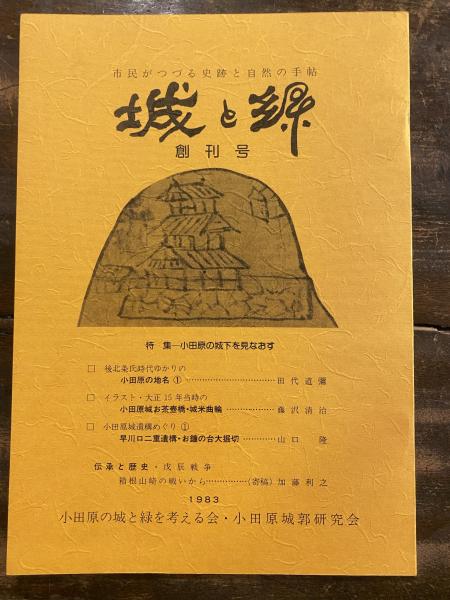 市民がつづる史跡と自然の手帖
城と緑
創刊号
特 集―小田原の城下を見なおす
□ 後北条氏時代ゆかりの
小田原の地名 ① ………………………… 田代道彌
□ イラスト・大正15年当時の
小田原城お茶壺橋・城米曲輪 ………… 藤沢清治
□ 小田原城遺構めぐり ①
早川口二重遺構・お鐘の台大堀切 ………… 山口 隆
伝承と歴史・戊辰戦争
箱根山崎の戦いから……………(寄稿) 加藤利之
1983
小田原の城と緑を考える会・小田原城郭研究会